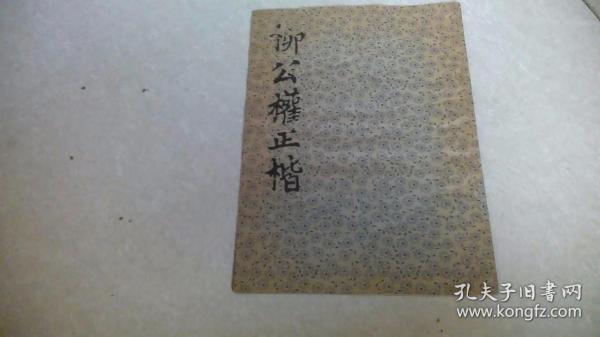 柳公權正楷
孔夫子旧書网
www.kongfz.com